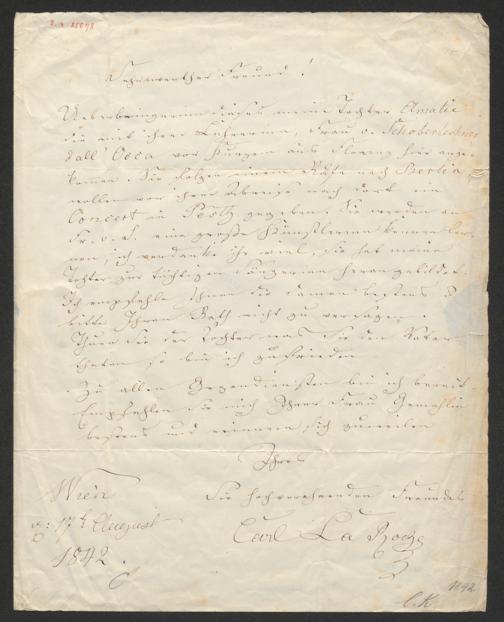 Sehrwerther Freund!
Ueberbringerin dieses meine Tochter Amalie
die mit ihrer Lehrerin, Frau v. Schoberlechner
dall'Occa vor Kurzem aus Florenz hier ange-
kommen. Sie folgen einem Rufe nach Berlin
wollen vor ihrer Abreise nach dort ein
Concert in Pesth geben. Sie werden an
Fr. v. S. eine große Künstlerin kennen ler-
nen, ich verdanke ihr viel, sie hat meine
Tochter zur tüchtigen Sängerin heran gebildet.
Ich empfehle Ihnen die Damen bestens &
bitte Ihren Rath nicht zu versagen.
Thun Sie der Tochter was Sie dem Vater
thaten so bin ich zufrieden
Zu allen Gegendiensten bin ich bereit.
Empfehlen Sie mich Ihrer Frau Gemahlin
bestens und erinnern sich zuweilen
Ihres
Sie hochverehrenden Freundes
Carl La Roche
Wien
17t August
1842.
1842
C.K.